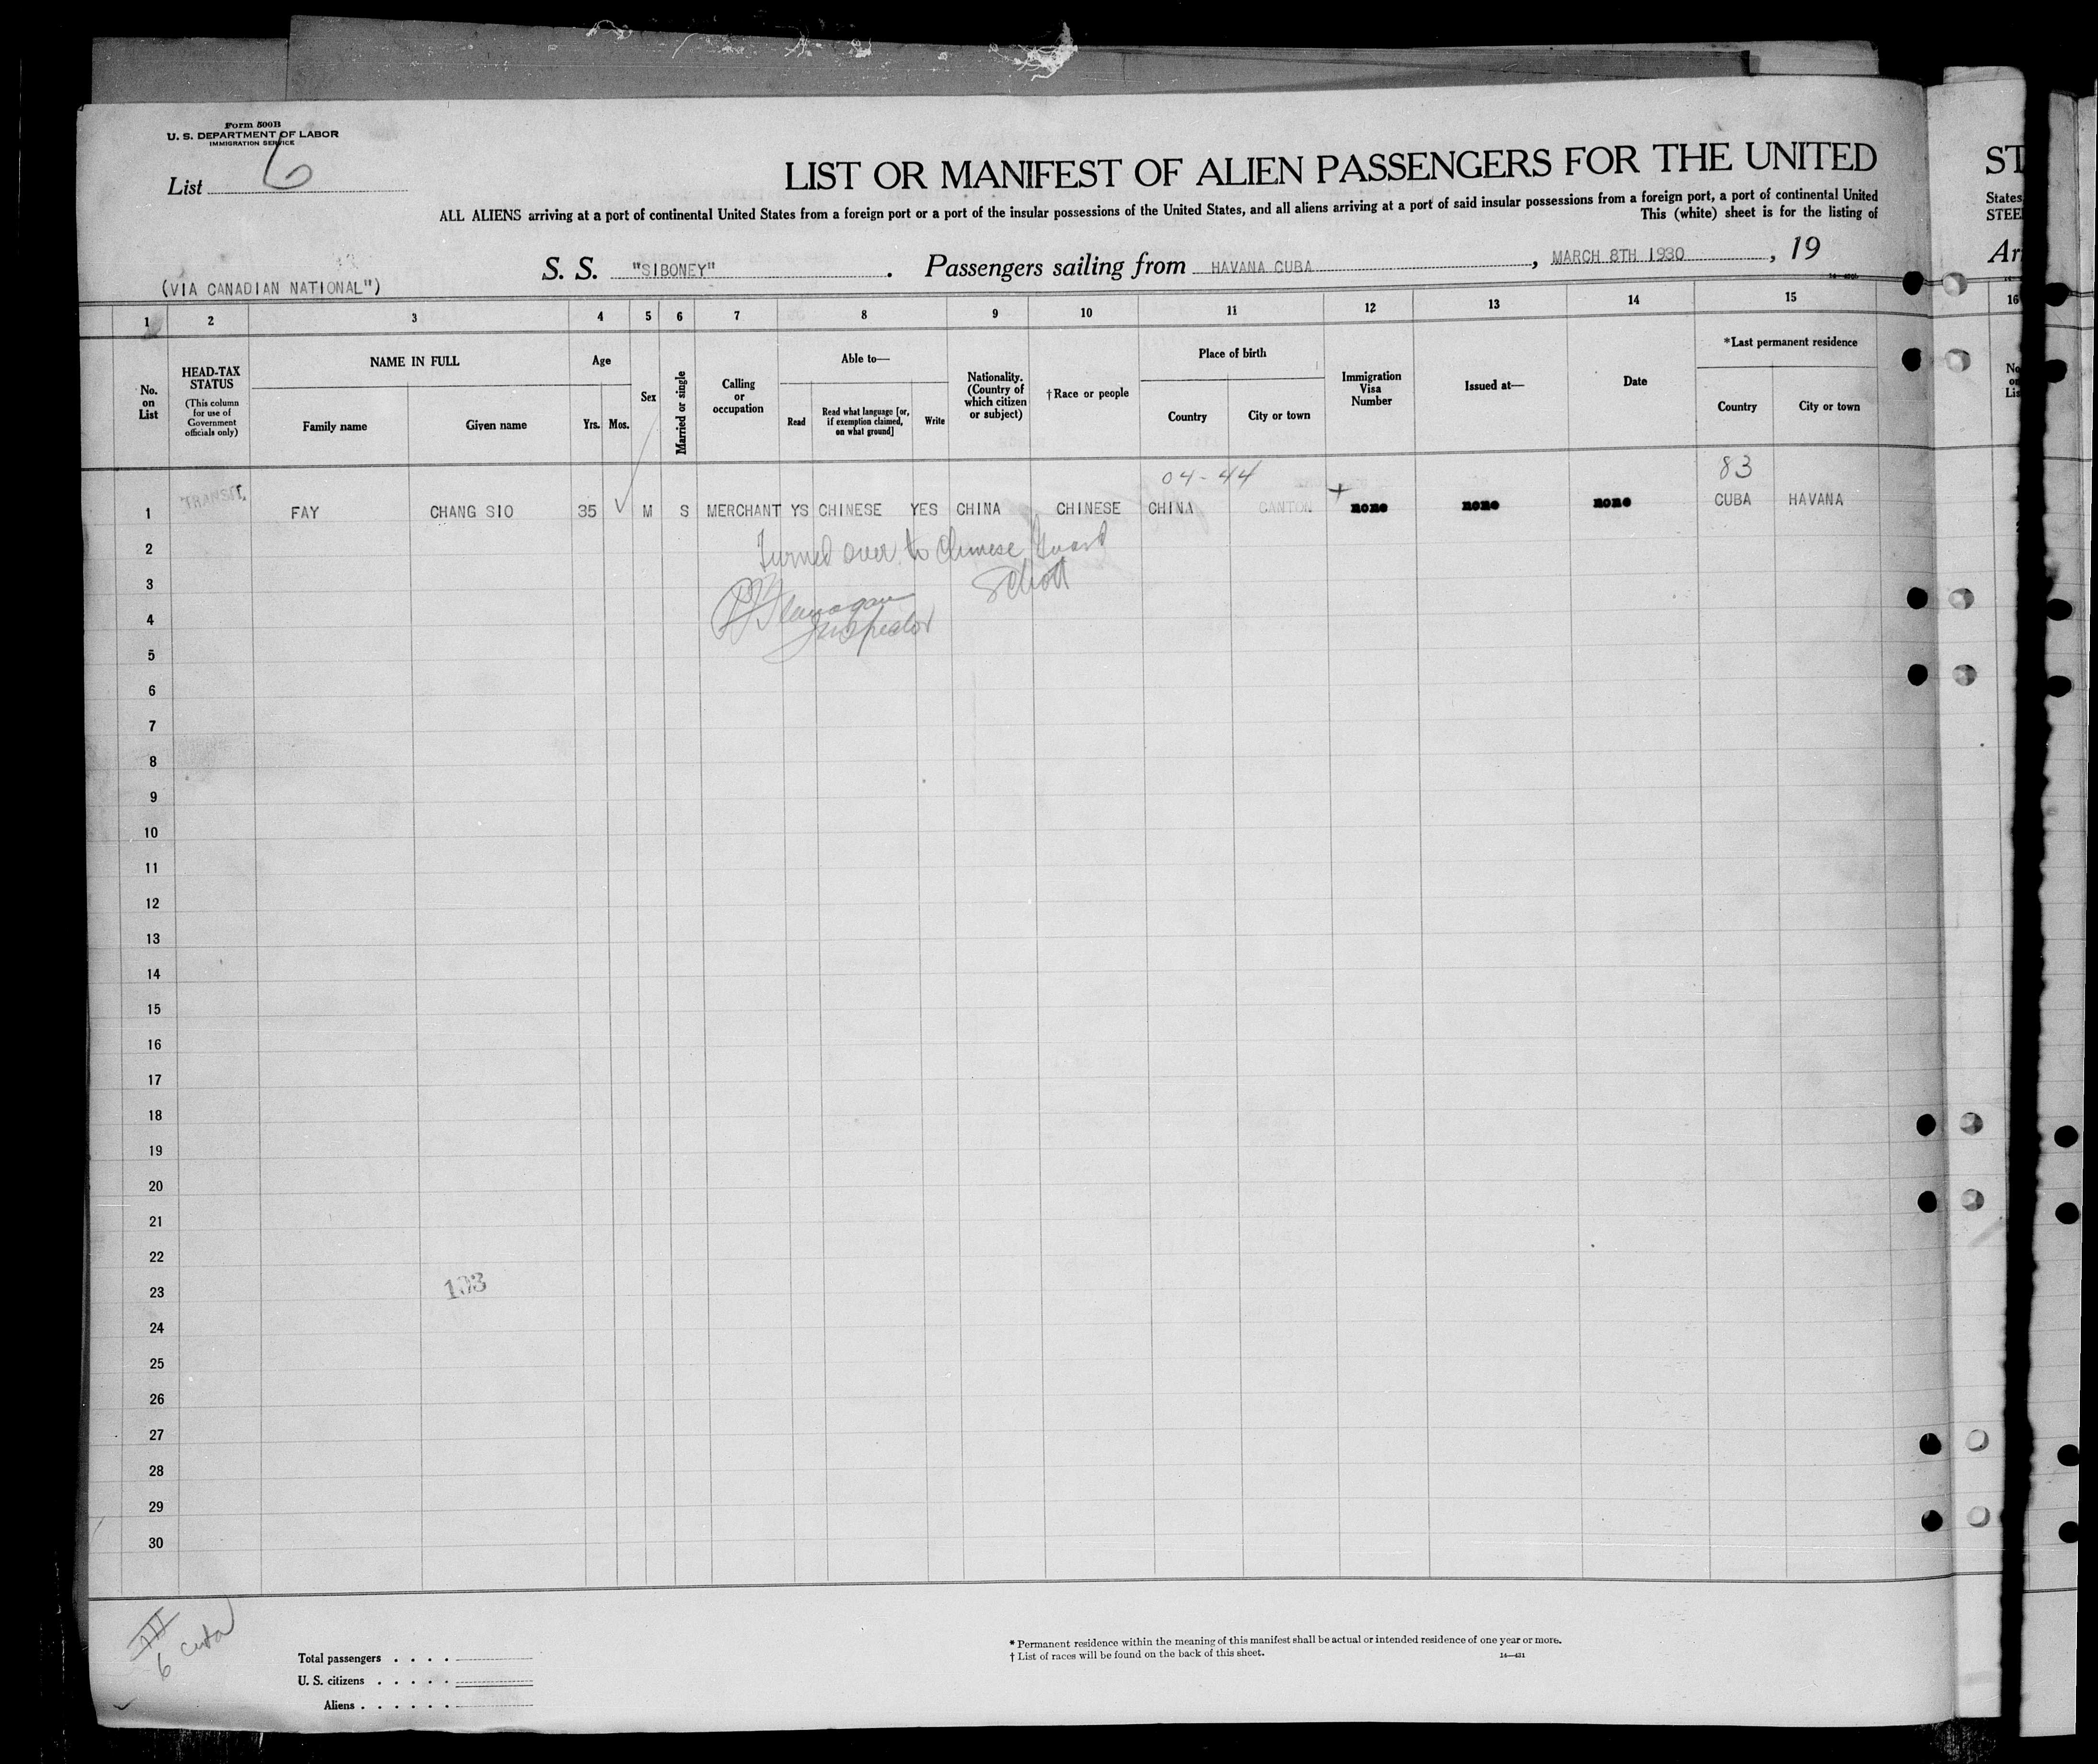 Form 500B
U. S. DEPARTMENT OF LABOR
IMMIGRATION SERVICE
List 6
LIST OR MANIFEST OF ALIEN PASSENGERS FOR THE UNITED
ALL ALIENS arriving at a port of continental United States from a foreign port or a port of the insular possessions of the United States, and all aliens arriving at a port of said insular possessions from a foreign port, a port of continental United
This (white) sheet is for the listing of
S. S. "SIBONEY" . Passengers sailing from HAVANA CUBA , MARCH 8TH 1930 , 19
(VIA CANADIAN NATIONAL")
1 2 3 4 5 6 7 8 9 10 11 12 13 14 15
No. on List
HEAD-TAX STATUS
(This column for use of Government officials only)
NAME IN FULL
Family name Given name
Age
Yrs. Mos.
Sex
Married or single
Calling or occupation
Able to—
Read
Read what language [or, if exemption claimed, on what ground]
Write
Nationality. (Country of which citizen or subject)
†Race or people
Place of birth
Country City or town
Immigration Visa Number
Issued at—
Date
*Last permanent residence
Country City or town
04-44 83
1 TRANSIT FAY CHANG SIO 35 M S MERCHANT YS CHINESE YES CHINA CHINESE CHINA CANTON none none none CUBA HAVANA
2 Turned over to Chinese Guard
3 Schott
4 Flanagan
Inspector
5
6
7
8
9
10
11
12
13
14
15
16
17
18
19
20
21
22
23 103
24
25
26
27
28
29
30
6 Cuba
Total passengers . . . .
U. S. citizens . . . . .
Aliens . . . . . .
* Permanent residence within the meaning of this manifest shall be actual or intended residence of one year or more.
† List of races will be found on the back of this sheet.
ST
States
STEE
Ar
16
No
on
Lis